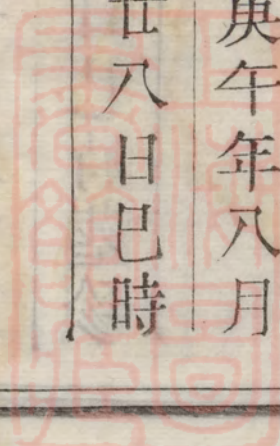 庚午年八月
廿八日巳時